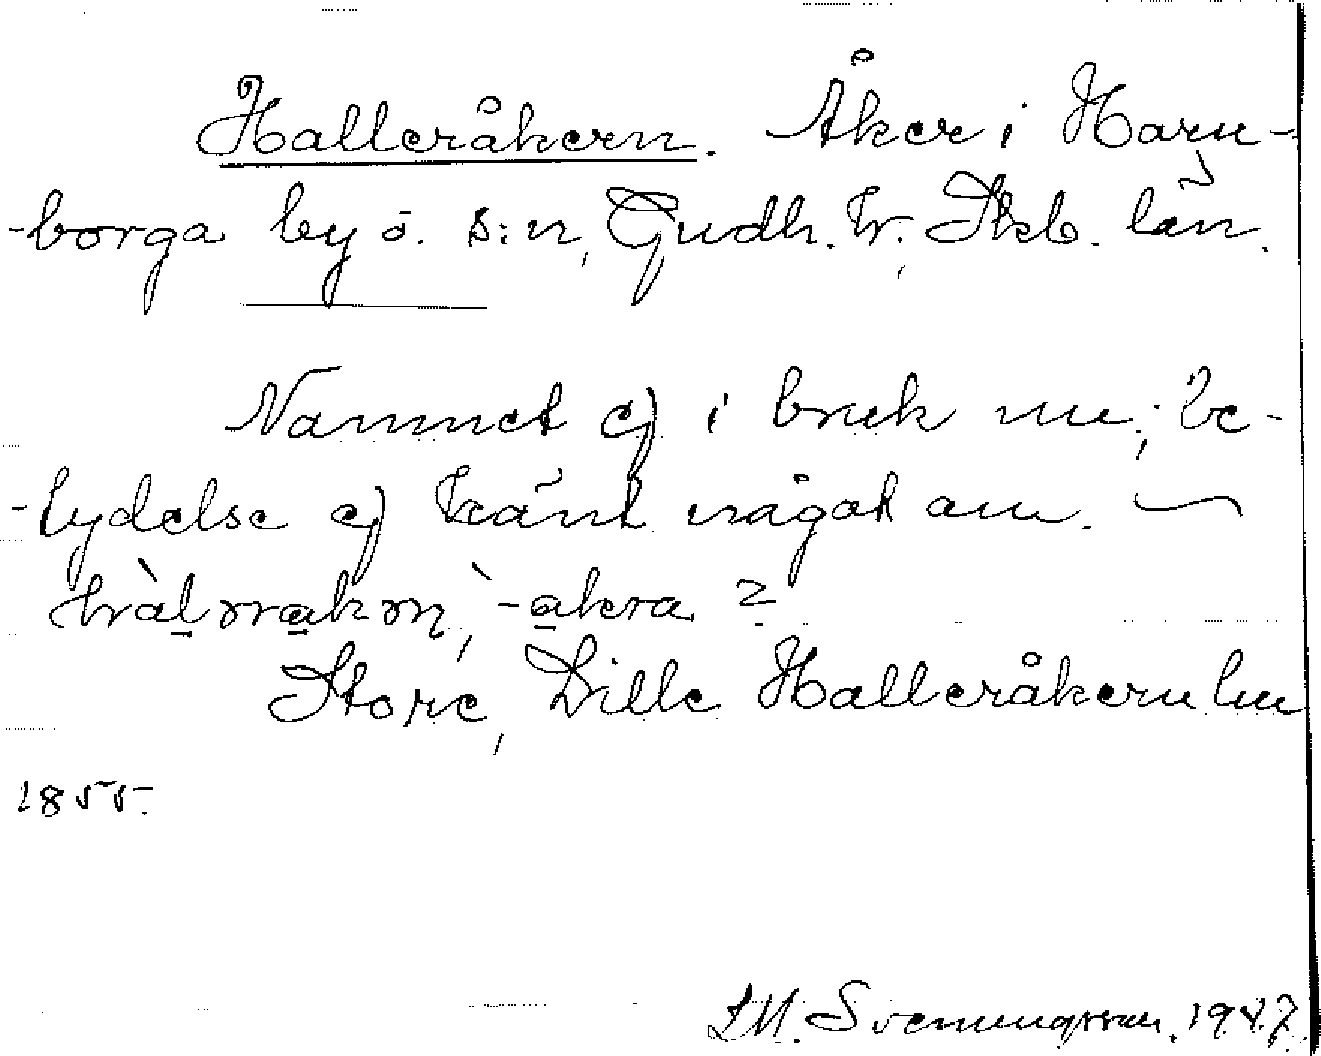 Halleråkern. Åker i Horn-
-borga by o. s:n, Gudh. hr, Skb. län.
Namnet ej i bruk nu; be-
-tydelse ej känt något om.
-åkra ?
Store, Lille Halleråkern lm
1855.
S. M. Svenungsson. 1947.